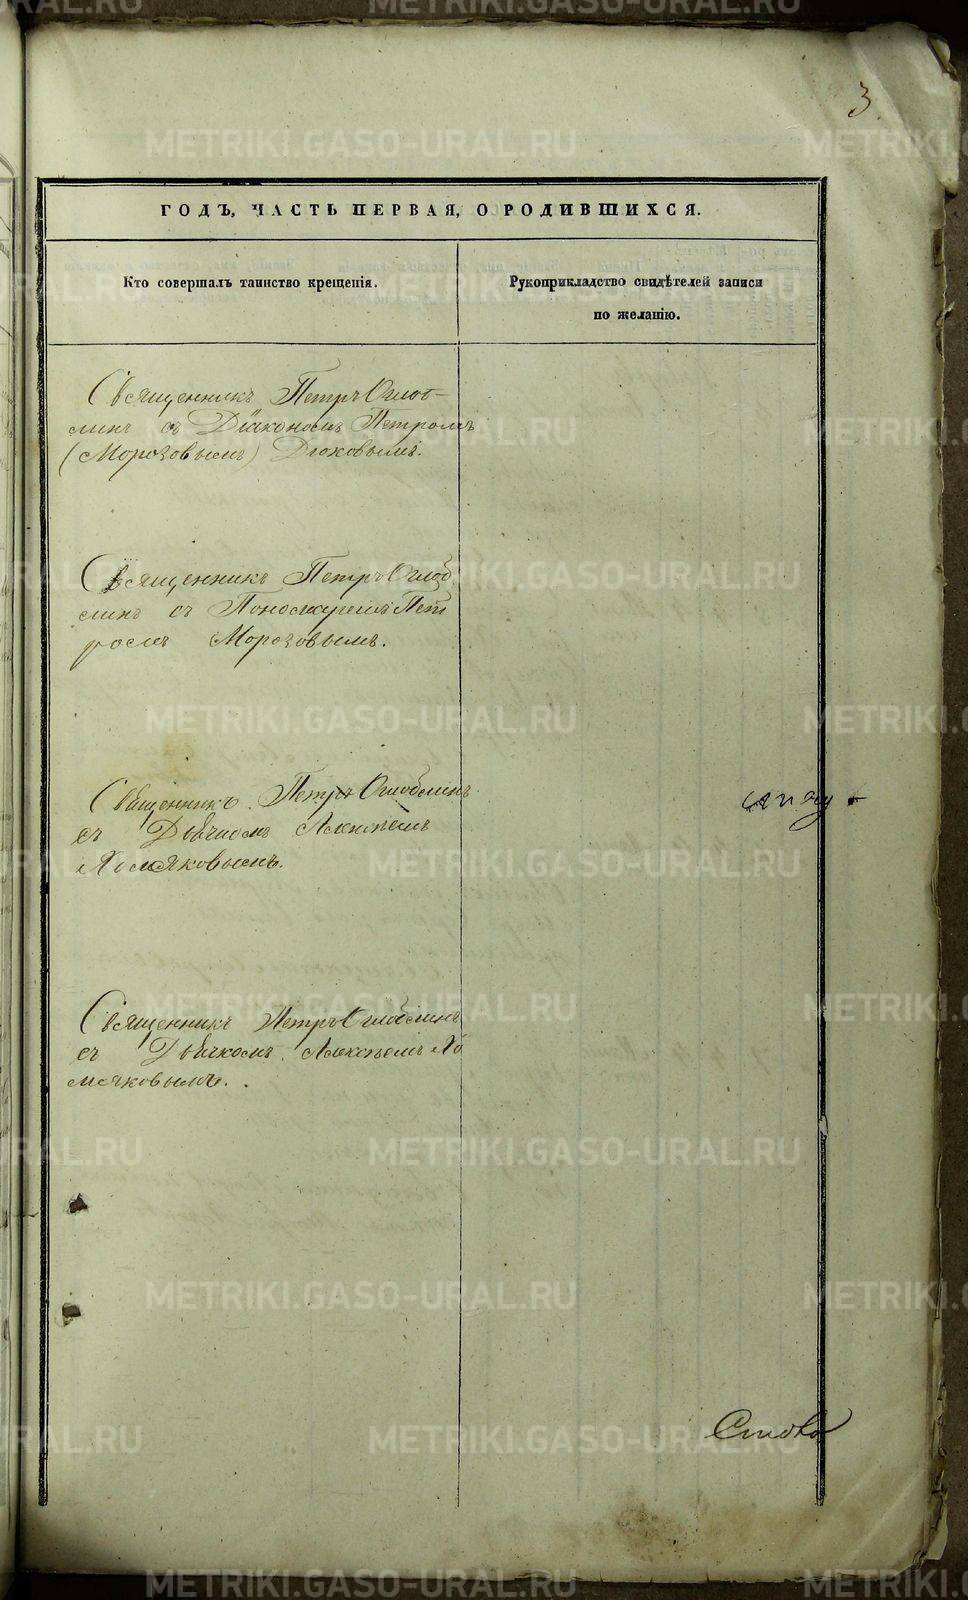 3
ГОДЪ, ЧАСТЬ ПЕРВАЯ, О РОДИВШИХСЯ.
Кто совершалъ таинство крещенія.
Рукоприкладство свидѣтелей записи
по желанію.
Священникъ Петръ Оглоб-
линъ съ Діакономъ Петромъ
(Морозовымъ) Дюковымъ.
Священникъ Петръ Оглоб
линъ съ Пономаремъ Пет
ромъ Морозовымъ.
Священникъ Петръ Оглоблинъ
съ Дьячкомъ Алексѣемъ
Хомяковымъ.
Священникъ Петръ Оглоблинъ
съ Дьячкомъ Алексѣемъ Хо
мяковымъ.
METRIKI.GASO-URAL.RU